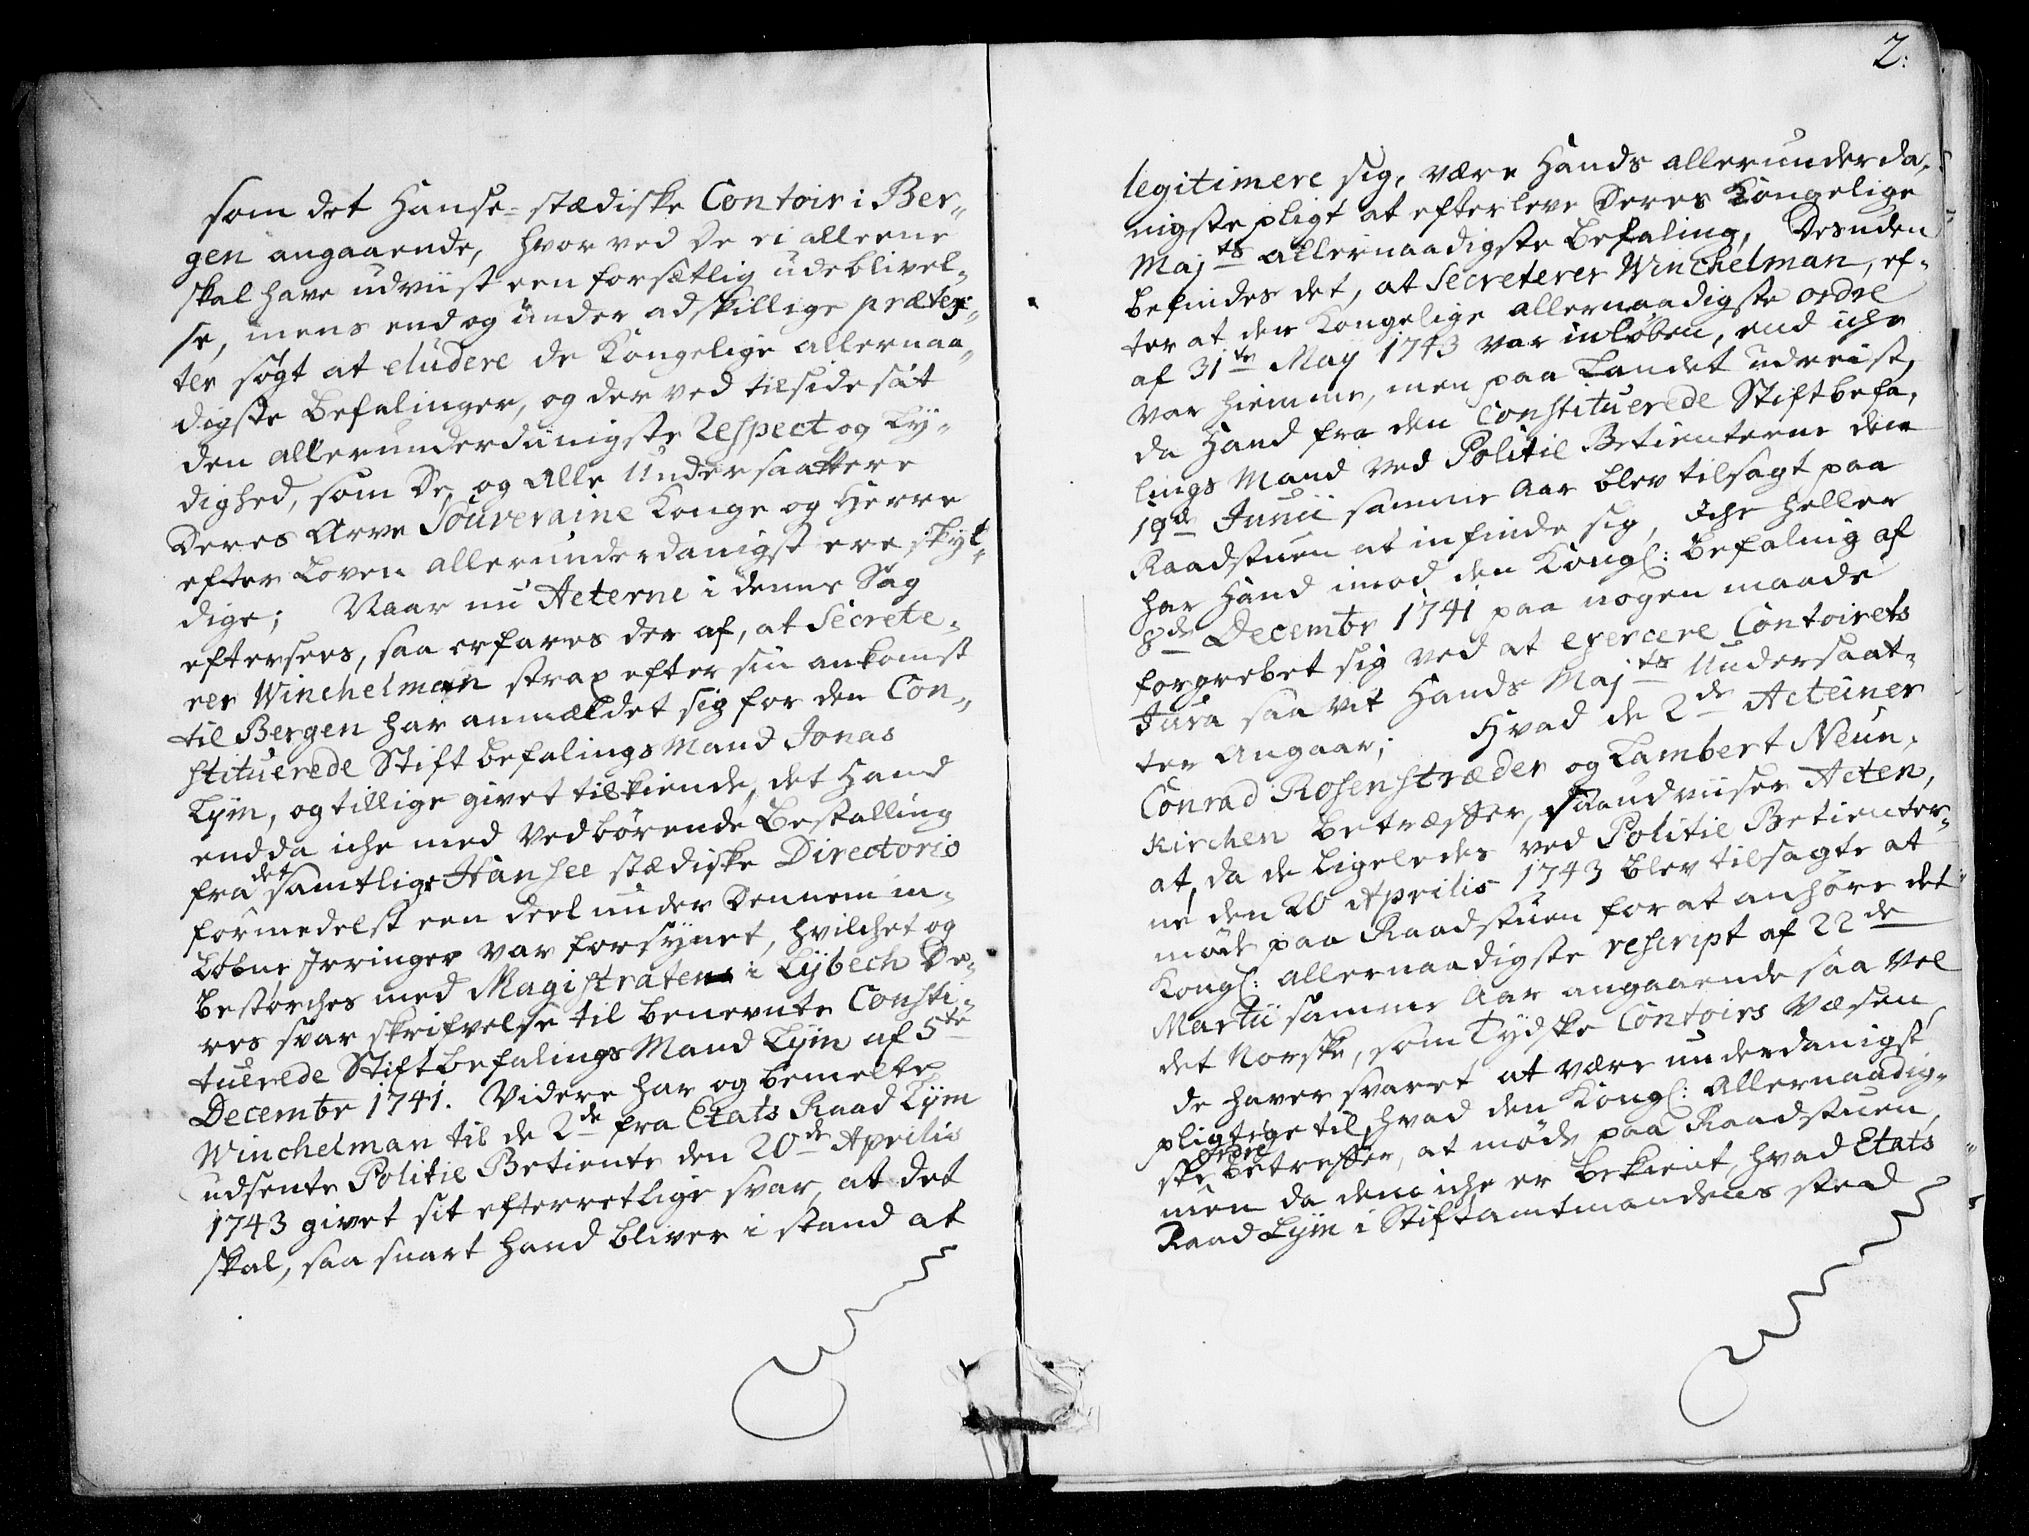 som det Hanse-stædiske Contoir i Ber-
gen angaaende, hvorved De ei alleene
skal have udviist een forsætlig udeblivel-
se, mens endog under adskillige prætex-
ter søgt at eludere de Kongelige allernaa-
digste befalinger, og derved tilsidesat
den allerunderdanigste Respect og Ly-
dighed, som De og Alle Undersaattere
Deres Arve Souveraine Konge og Herre
efter Loven allerunderdanigst ere skyl-
dige; Naar nu Acterne i denne Sag
eftersees, saa erfares der af, at Secrete-
rer Winchelman strax efter sin ankomst
til Bergen har anmældet sig for den Con-
stituerede Stift befalings Mand Jonas
Lÿm, og tillige givet tilkiende, det Hand
endda iche med Vedbørende Bestalling
fra det samtlige Hansee stædiske Directorio
formedelst een deel under Dennem in-
løbne Irringer var forsÿnet, hvilchet og
bestørches med Magistraten i Lÿbech De-
res svar skrifvelse til benevnte Consti-
tuerede Stiftbefalings Mand Lÿm af 5te
Decembr 1741. Videre har og bemelte
Winchelman til de 2de fra Etats Raad Lÿm
udsente Politie Betiente den 20de Aprilis
1743 givet sit efterretlige svar, at det
skal, saa snart Hand bliver i stand at
2:
legitimere sig, være Hands allerunderda-
nigste pligt at efterleve Deres Kongelige
Majts allernaadigste befaling, Desuden
befindes det, at Secreterer Winchelman, ef-
ter at den Kongelige allernaadigste ordre
af 31te Maÿ 1743 var inløben, end iche
var hiemme, men paa Landet udreist,
da Hand fra den Constituerede Stiftbefa-
lings Mand ved Politie Betienterne den
19de Junii samme Aar blev tilsagt paa
Raadstuen at infinde sig, Iche heller
har Hand imod den Kongl: befaling af
8de Decembr 1741 paa nogen maade
forgrebet sig ved at exercere Contoirets
Jura saa vit Hands Majts Undersaat-
ter Angaar; Hvad de 2de Acteiner
Conrad Rosenstræder og Lambert Neun-
kirchen betræffer, saa udviiser Acten,
at, da de ligeledes ved Politie Betienter-
ne den 20 Aprilis 1743 blev tilsagte at
møde paa Raadstuen for at anhøre det
Kongl: allernaadigste rescript af 22de
Martii samme Aar angaaende saa vel
det Norske, som Tydske Contoirs Væsen
de haver svaret at være underdanigst
pligtige til, hvad den Kongl: Allernaadig-
ste ordre betreffer, at møde paa Raadstuen,
men da dem iche er bekient, hvad Etats
Raad Lÿm i Stiftamtmandens sted